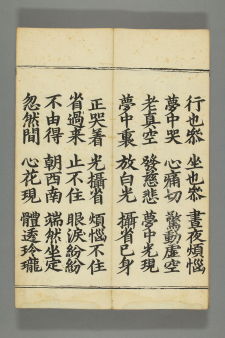 行也參 坐也參 晝夜煩惱
夢中哭 心痛切 驚動虛空
老真空 發慈悲 夢中光現
夢中裏 放白光 攝省己身
正哭着 光攝省 煩惱不住
省過来 止不住 眼淚紛紛
不由得 朝西南 端然坐定
忽然間 心花現 體透玲瓏